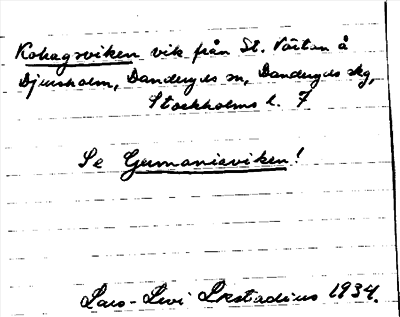 Kohagsviken vik från St. Värtan å
Djursholm, Danderyds sn, Danderyds skg,
Stockholms l. 7
Se Germaniaviken!
Lars-Levi Læstadius 1934.